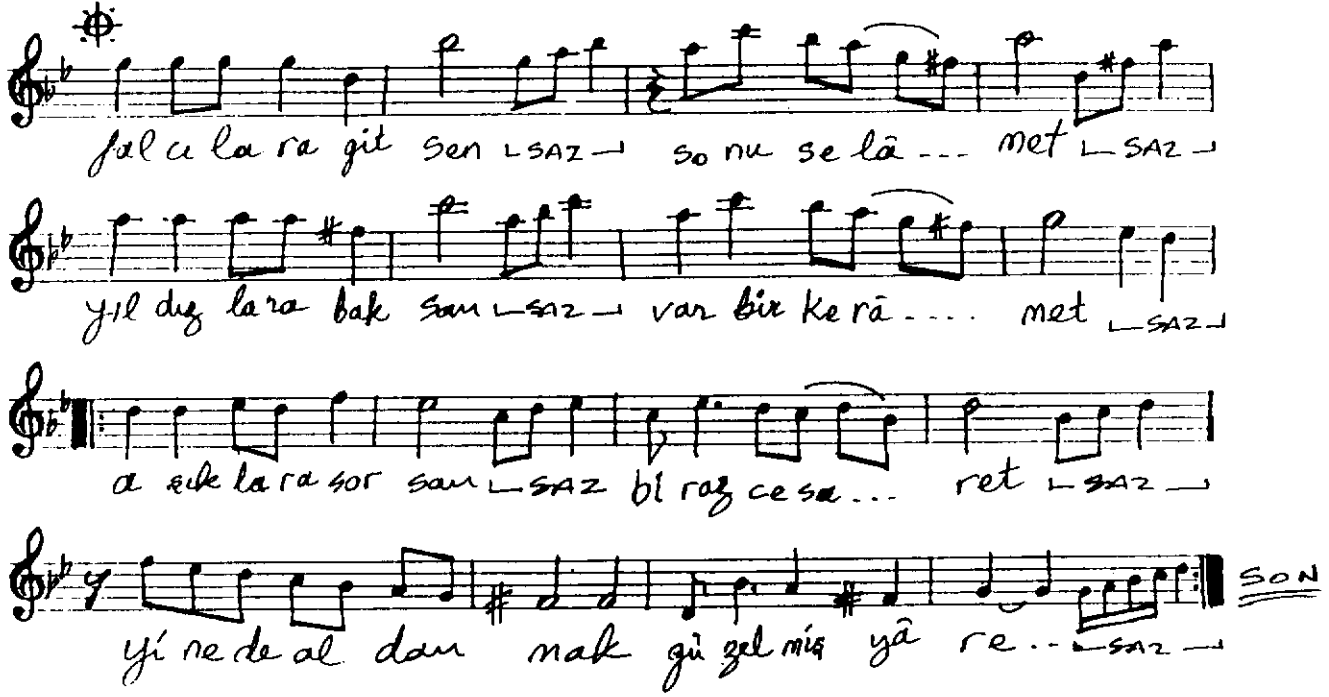 fal cı la ra git sen SAZ so nu se lâ ... met SAZ
yıl dız la ra bak san SAZ var bir ke râ .... met SAZ
a şık la ra sor san SAZ bi raz ce sa ... ret SAZ
SON
yi ne de al dan mak gü zel miş yâ re .. SAZ